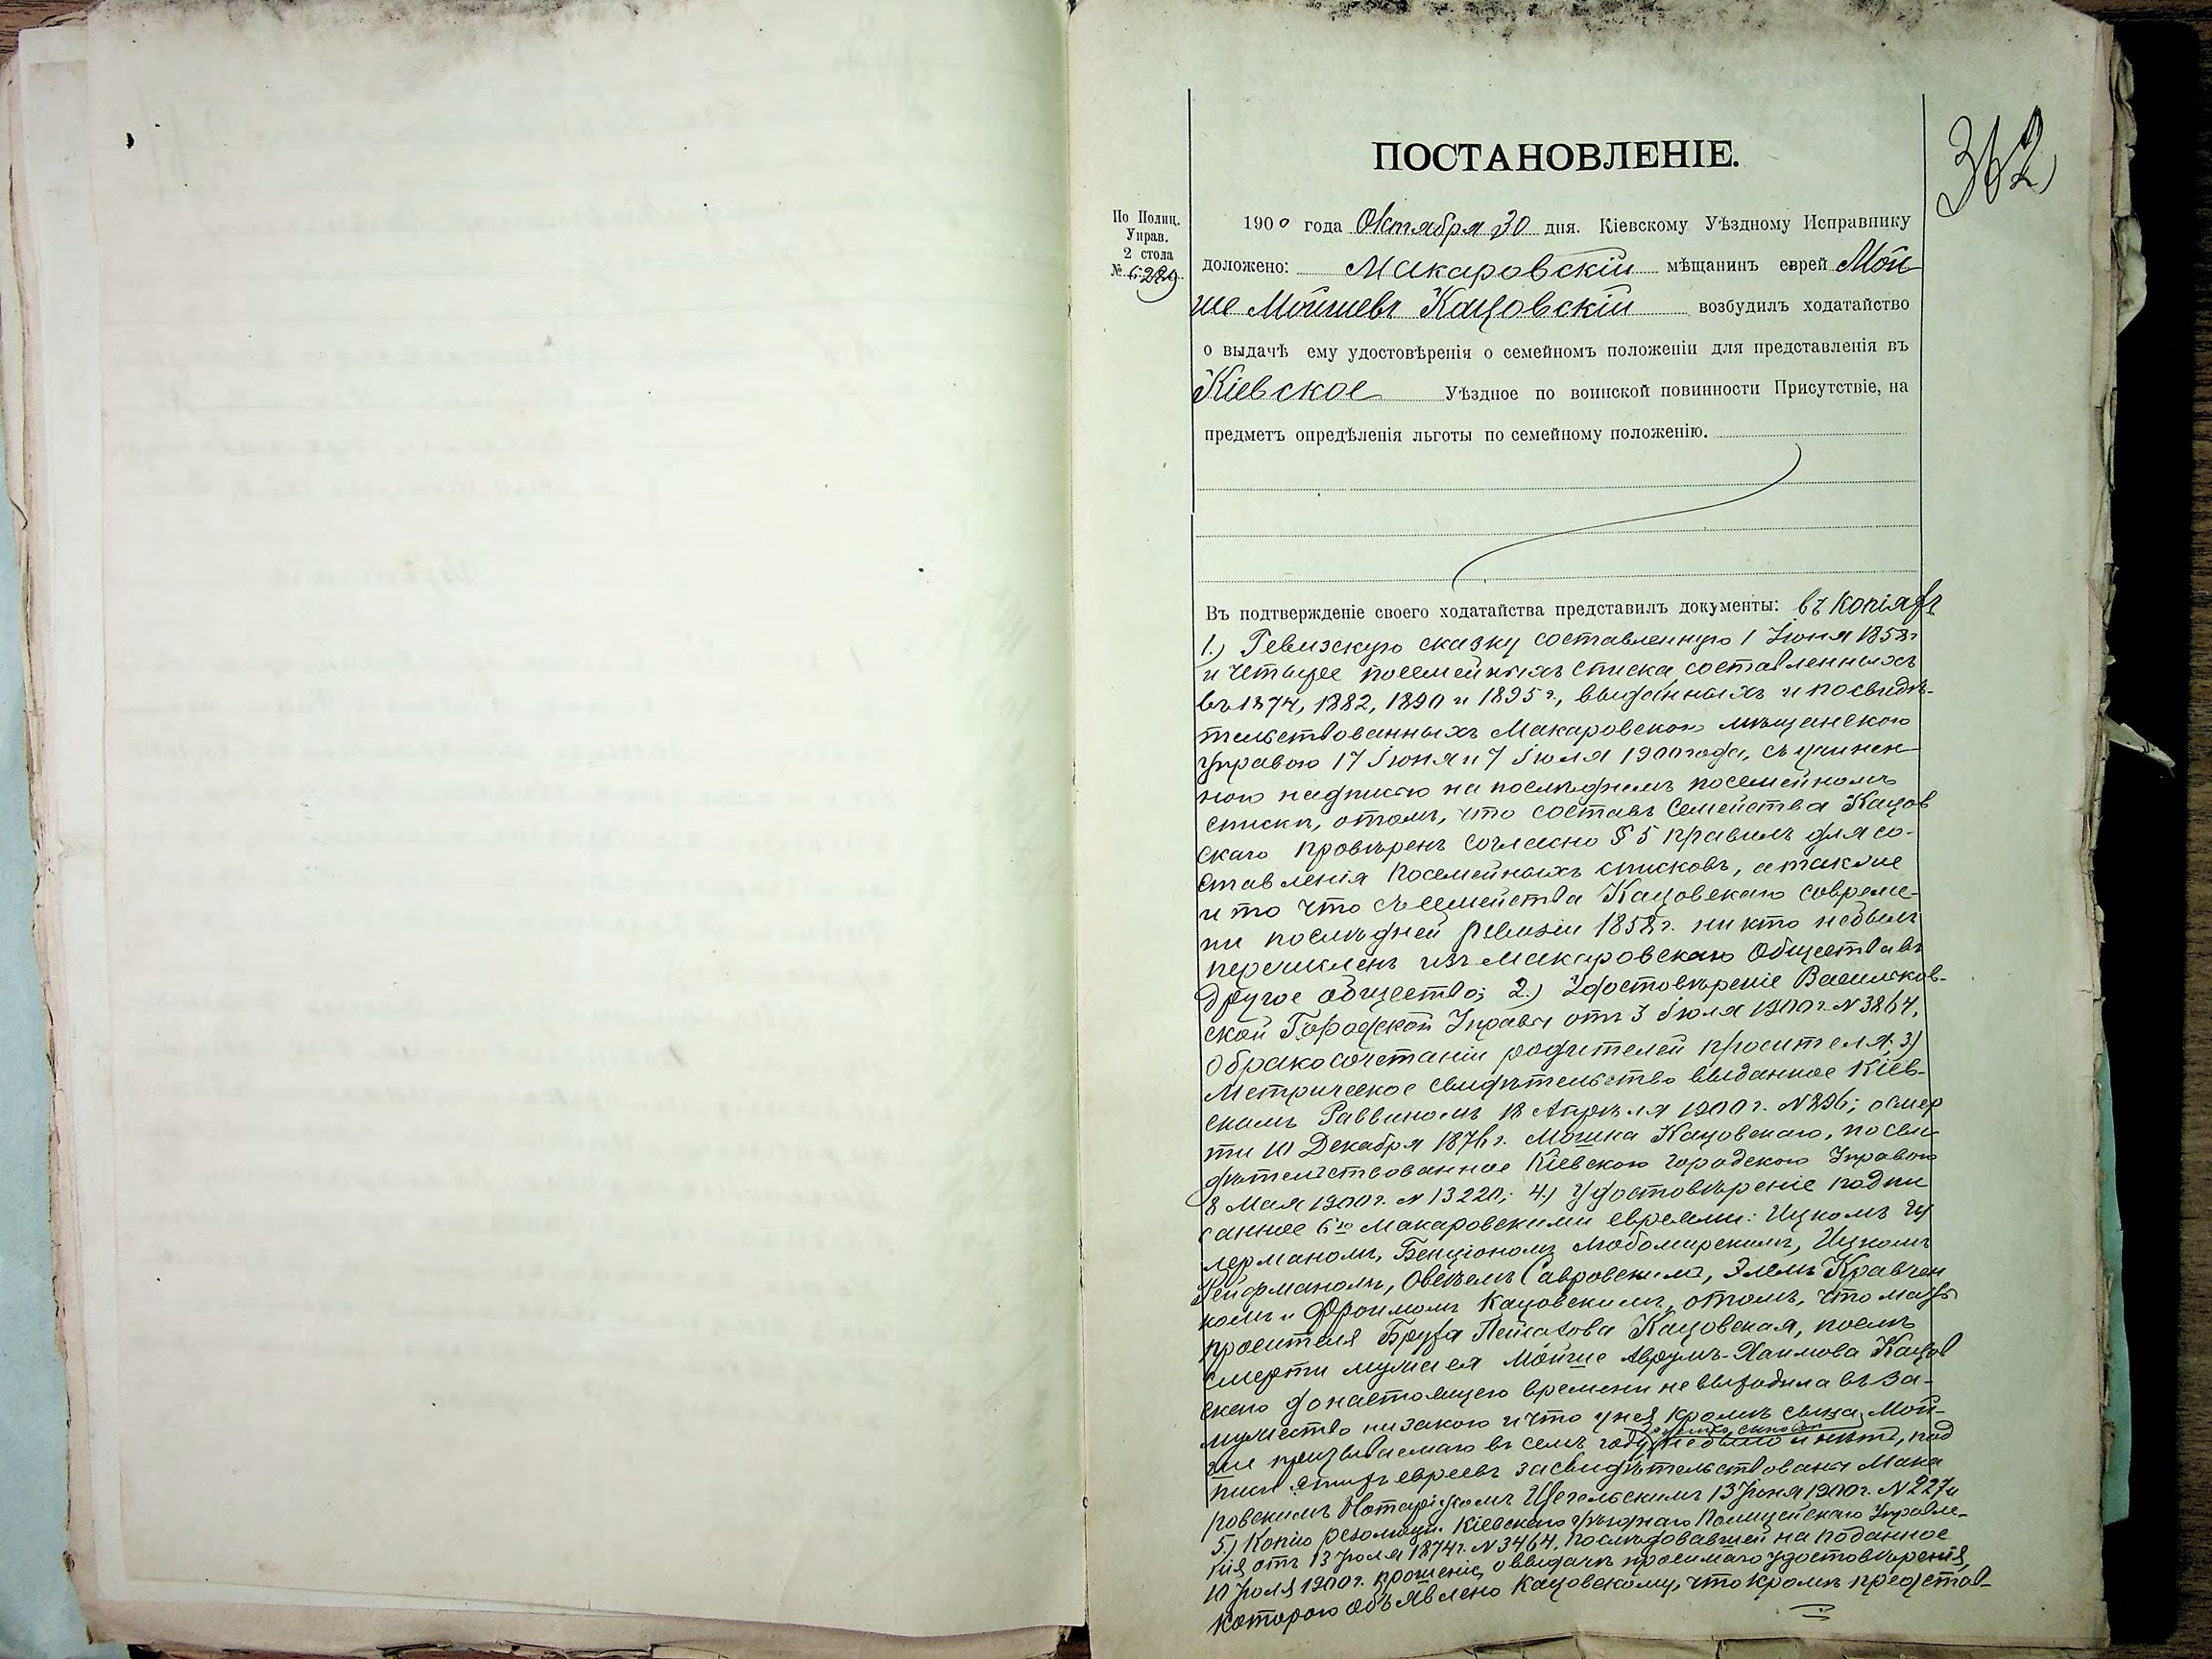 362
ПОСТАНОВЛЕНІЕ.
По Полиц.
Управ.
2 стола
№
1900 года Октября 30 дня. Кіевскому Уѣздному Исправнику
доложено: Макаровскій мѣщанинъ еврей Мой-
ше Мойшевъ Кацовскій возбудилъ ходатайство
о выдачѣ ему удостовѣренія о семейномъ положеніи для представленія въ
Кіевское Уѣздное по воинской повинности Присутствіе, на
предметъ опредѣленія льготы по семейному положенію.
Въ подтвержденіе своего ходатайства представилъ документы: въ копіяхъ
1.) Ревизскую сказку составленную 1 Іюня 1858 г
и четыре посемейныхъ списка, составленныхъ
въ 1874, 1882, 1890 и 1895 г., выданныхъ и посвидѣ-
тельствованныхъ Макаровскою мѣщанскою
управою 17 Іюня и 7 Іюля 1900 года, съ учинен-
ною надписью на послѣднемъ посемейномъ
спискѣ, отомъ, что составъ семейства Кацов
скаго провѣренъ согласно § 5 правилъ для со-
ставленія посемейныхъ списковъ, а также
и то что съ семейства Кацовскаго совреме-
ни послѣдней ревизіи 1858 г. ни кто небылъ
перечисленъ изъ Макаровскаго Общества въ
другое общество; 2.) Удостовѣреніе Васильков-
ской Городской Управы отъ 3 Іюля 1900 г. № 3864,
о бракосочетаніи родителей просителя; 3)
Метрическое свидѣтельство выданное Кіев-
скимъ Раввиномъ 18 Апрѣля 1900 г. № 896; о смер
ти 10 Декабря 1876 г. Мошка Кацовскаго, посви
дѣтельствованное Кіевскою городскою Управою
8 Мая 1900 г. № 13220; 4.) Удостовѣреніе подпи
санное 6ю Макаровскими евреями: Ицкомъ Цу
керманомъ, Бенціономъ Любомирскимъ, Ицкомъ
Рейфманомъ, Овсѣемъ Савровскимъ, Элемъ Кравчен
комъ и Фроимомъ Кацовскимъ, отомъ, что мать
просителя Бруха Кацовская, послѣ
смерти мужа ея Мойше Аврумъ-Хаимова Кацов
скаго до настоящаго времени не выходила въ за-
мужество ни закого и что у нея кромѣ сына Мой-
ше призываемаго въ семъ году, небыло и нѣтъ, под
писи этихъ евреевъ засвидѣтельствованы Мака
ровскимъ Нотаріусомъ Щегельскимъ 13 Іюня 1900 г. №
5.) Копію резолюціи Кіевскаго уѣзднаго Полицейскаго Управле-
нія отъ 13 Іюля 1874 г. № 3464, послѣдовавшей на поданное
10 Іюля 1900 г. прошеніе, о выдачѣ просимаго удостовѣренія,
которою объявлено Кацовскому, что кромѣ представ-